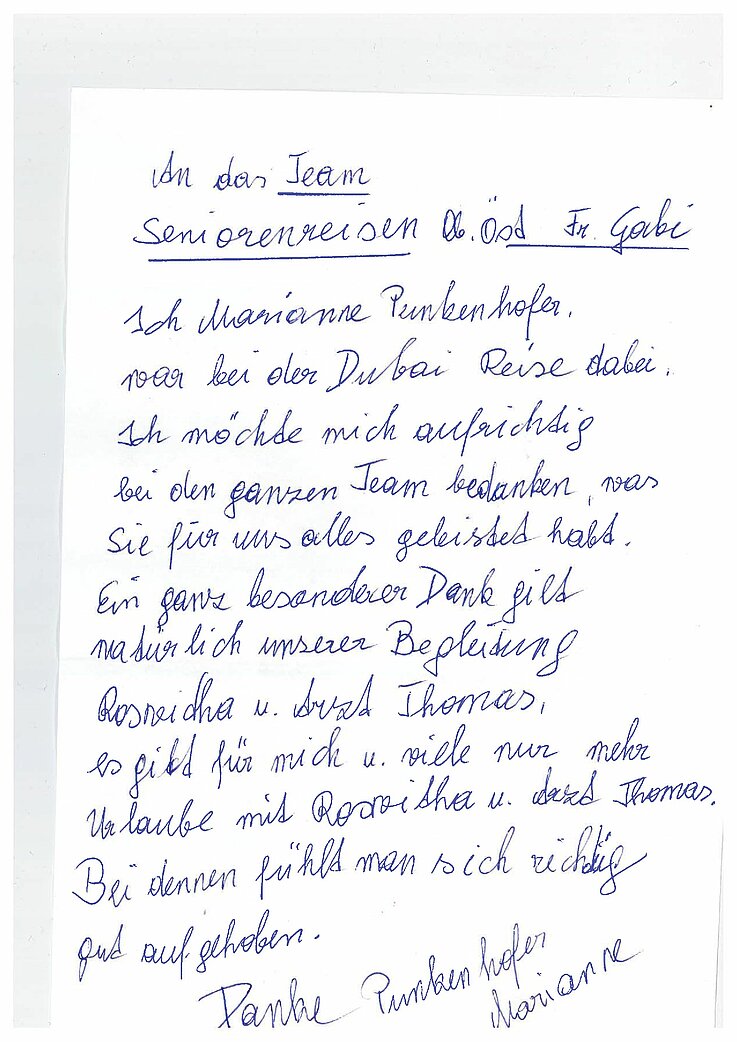 An das Team
Seniorenreisen Ob. Öst Fr. Gabi
Ich Marianne Punkenhofer.
war bei der Dubai Reise dabei.
Ich möchte mich aufrichtig
bei den ganzen Team bedanken, was
Sie für uns alles geleistet habt.
Ein ganz besonderer Dank gilt
natürlich unserer Begleitung
Roswidha u. Arzt Thomas,
es gibt für mich u. viele nur mehr
Urlaube mit Roswitha u. Arzt Thomas.
Bei dennen fühlt man sich richtig
gut aufgehoben.
Danke Punkenhofer
Marianne